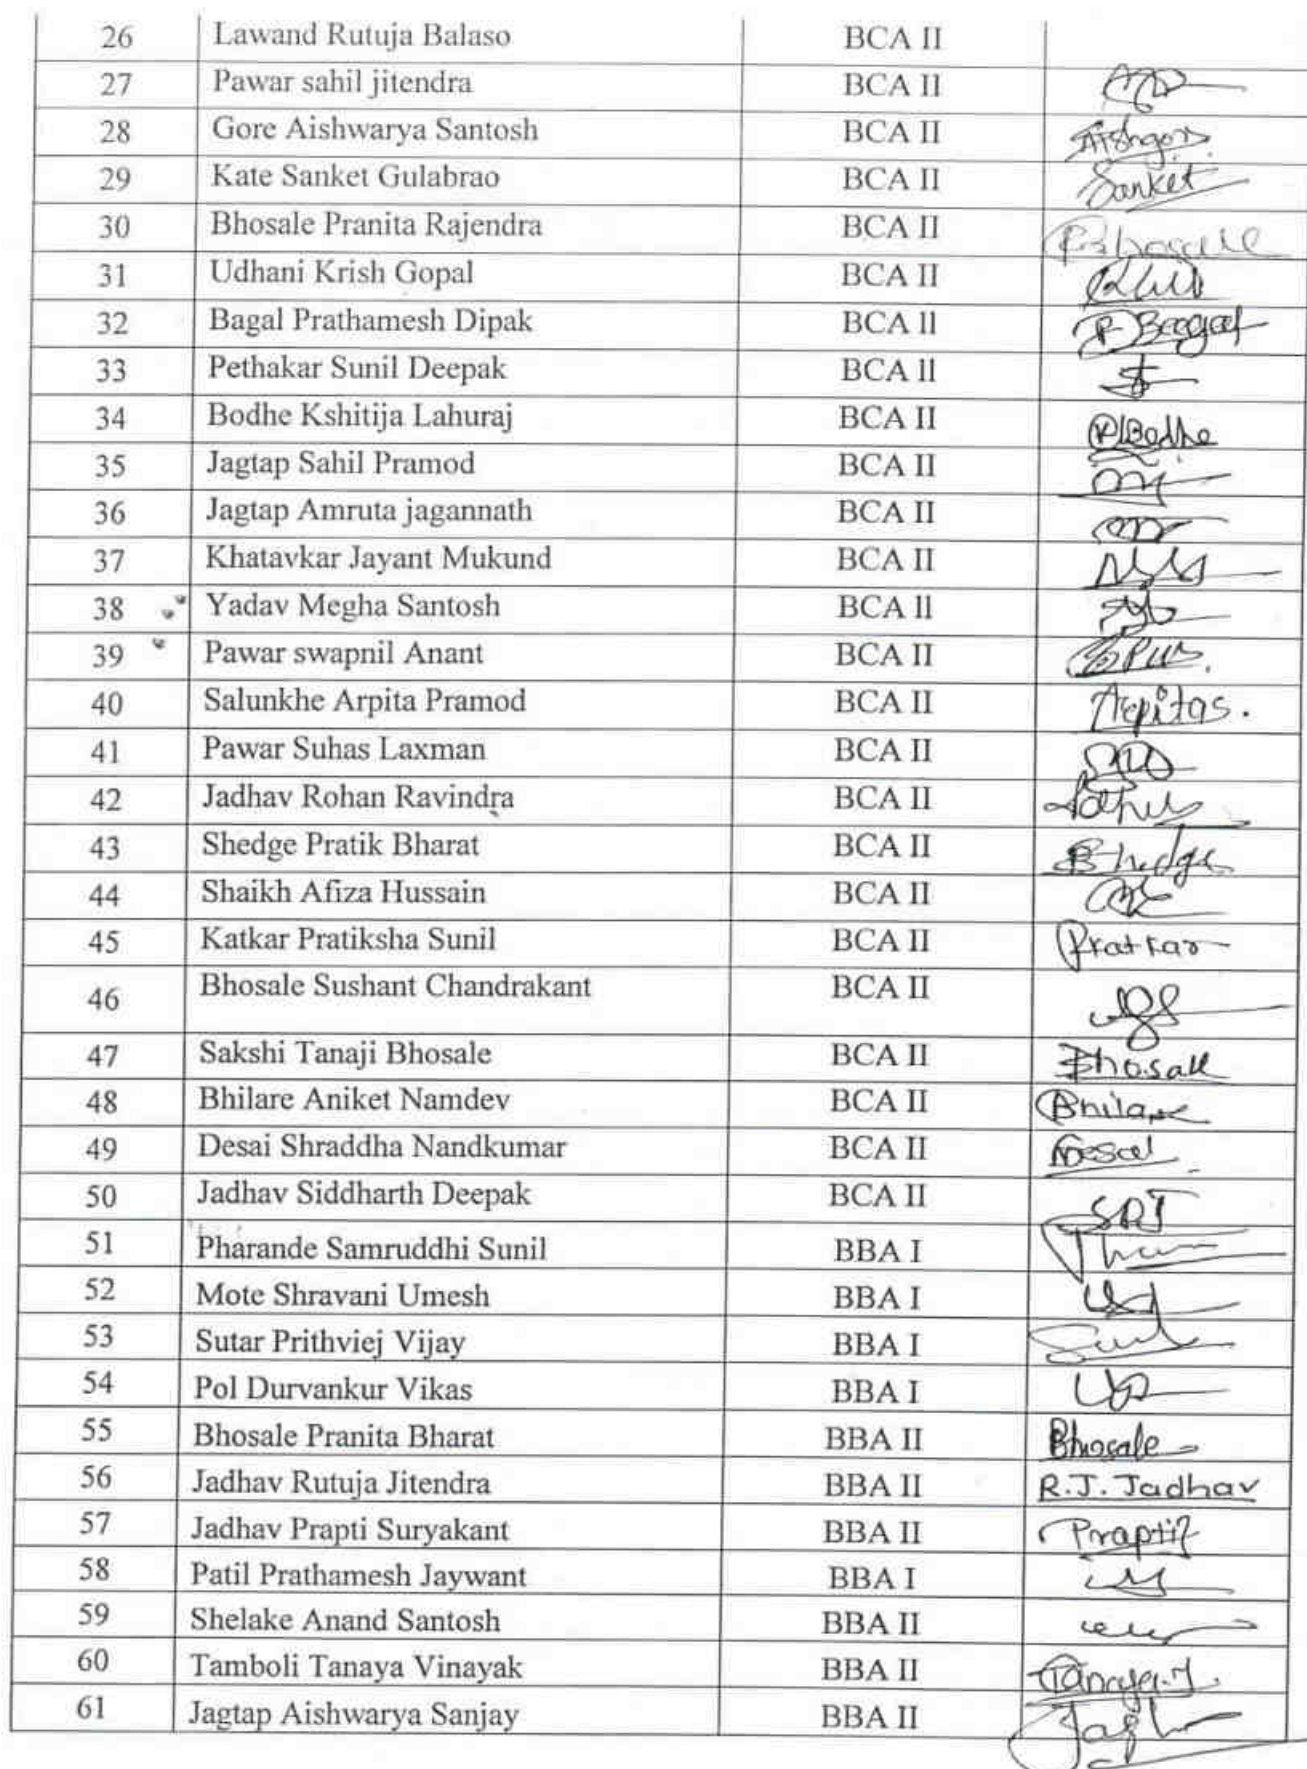 26 Lawand Rutuja Balaso BCA II
27 Pawar sahil jitendra BCA II
28 Gore Aishwarya Santosh BCA II
29 Kate Sanket Gulabrao BCA II Sanket
30 Bhosale Pranita Rajendra BCA II
31 Udhani Krish Gopal BCA II
32 Bagal Prathamesh Dipak BCA II P Bagal
33 Pethakar Sunil Deepak BCA II
34 Bodhe Kshitija Lahuraj BCA II
35 Jagtap Sahil Pramod BCA II
36 Jagtap Amruta jagannath BCA II
37 Khatavkar Jayant Mukund BCA II
38 Yadav Megha Santosh BCA II
39 Pawar swapnil Anant BCA II
40 Salunkhe Arpita Pramod BCA II Arpitas.
41 Pawar Suhas Laxman BCA II
42 Jadhav Rohan Ravindra BCA II
43 Shedge Pratik Bharat BCA II
44 Shaikh Afiza Hussain BCA II
45 Katkar Pratiksha Sunil BCA II
46 Bhosale Sushant Chandrakant BCA II
47 Sakshi Tanaji Bhosale BCA II Bhosale
48 Bhilare Aniket Namdev BCA II Bhilare
49 Desai Shraddha Nandkumar BCA II
50 Jadhav Siddharth Deepak BCA II
51 Pharande Samruddhi Sunil BBA I
52 Mote Shravani Umesh BBA I
53 Sutar Prithviej Vijay BBA I
54 Pol Durvankur Vikas BBA I
55 Bhosale Pranita Bharat BBA II Bhosale
56 Jadhav Rutuja Jitendra BBA II R.J. Jadhav
57 Jadhav Prapti Suryakant BBA II
58 Patil Prathamesh Jaywant BBA I
59 Shelake Anand Santosh BBA II
60 Tamboli Tanaya Vinayak BBA II
61 Jagtap Aishwarya Sanjay BBA II